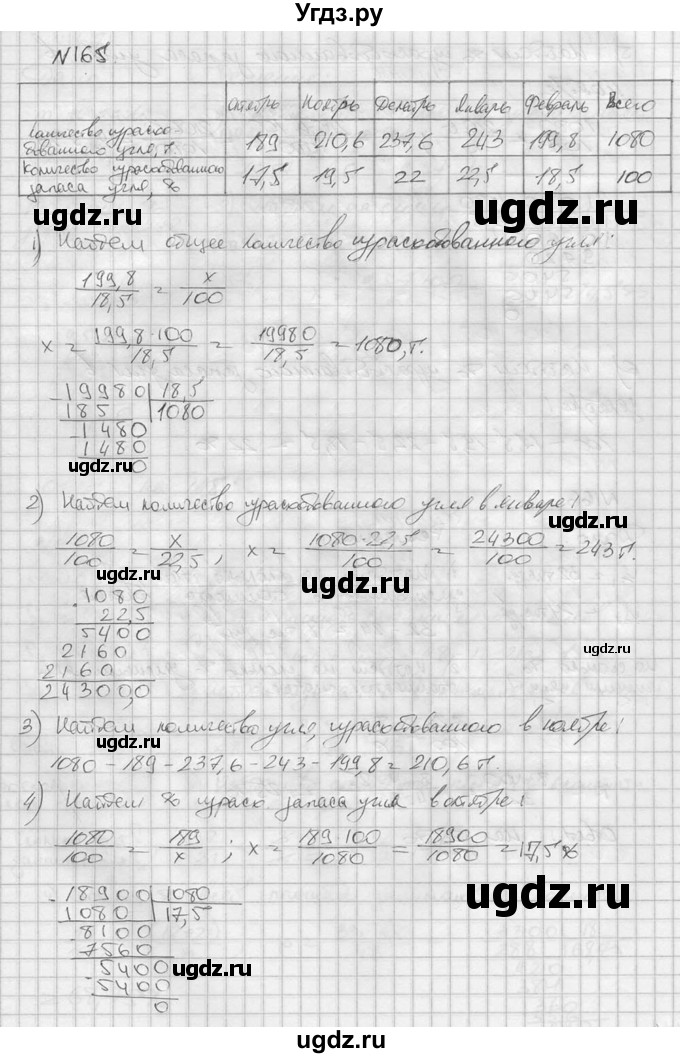 Угдз.ру
N165
Октябрь Ноябрь Декабрь Январь Февраль Всего
Количество израсхо-
дованного угля, т 189 210,6 237,6 243 199,8 1080
Количество израсходованного
запаса угля, % 17,5 19,5 22 22,5 18,5 100
ugdz.ru ugdz.ru
1) Найдем общее количество израсходованного угля:
199,8/18,5 = x/100
x = 199,8·100/18,5 = 19980/18,5 = 1080, т.
19980 18,5
185 1080
1480
1480
0
ugdz.ru
2) Найдем количество израсходованного угля в январе:
ugdz.ru
1080/100 = x/22,5, x = 1080·22,5/100 = 24300/100 = 243 т.
ugdz.ru ugdz.ru
1080
22,5
5400
2160
2160
24300,0
ugdz.ru
3) Найдем количество угля, израсходованного в ноябре:
1080 - 189 - 237,6 - 243 - 199,8 = 210,6 т.
4) Найдем % израсх. запаса угля в октябре:
ugdz.ru
1080/100 = 189/x ; x = 189·100/1080 = 18900/1080 = 17,5 %
18900 1080
1080 17,5
8100
7560
5400
5400
0
ugdz.ru ugdz.ru
ugdz.ru
Угдз.ру